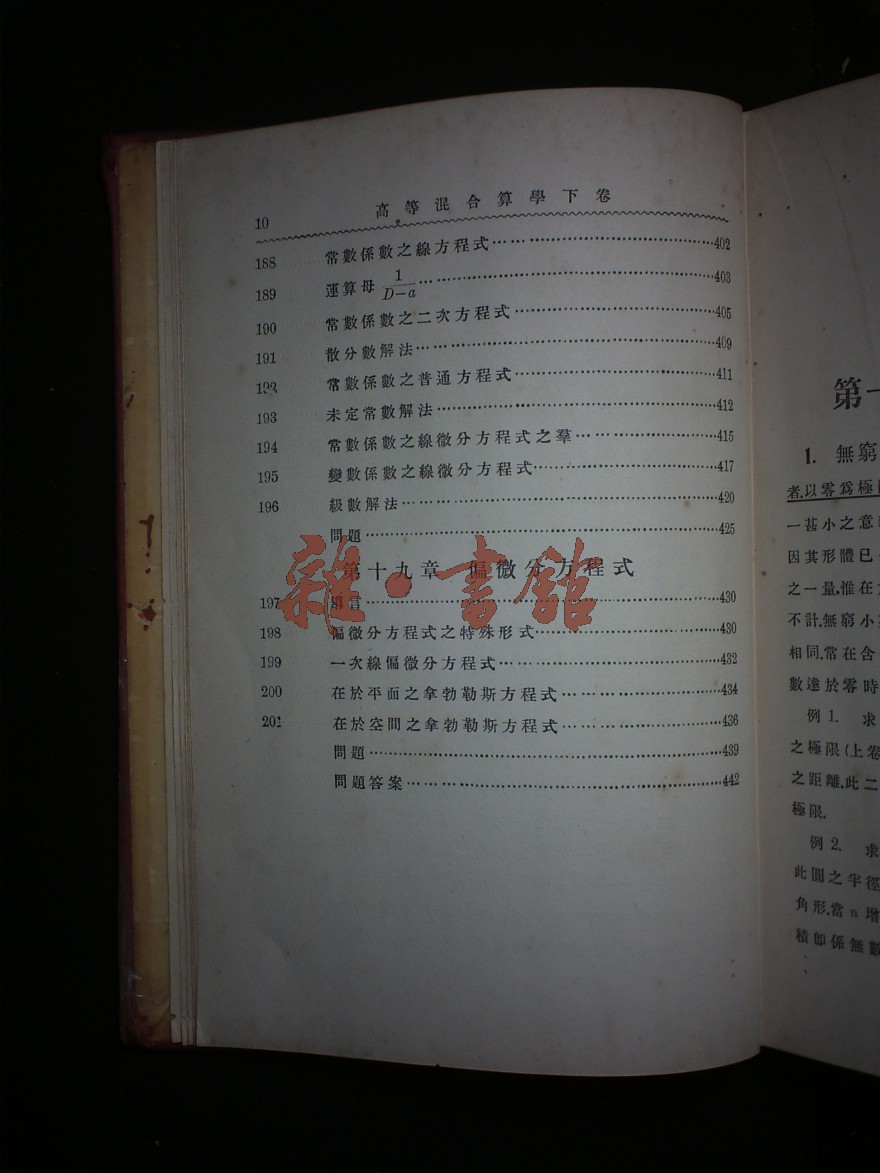 10 高等混合算學下卷
188 常數係數之線方程式……402
189 運算母 1/(D−a)……403
190 常數係數之二次方程式……405
191 散分數解法……409
192 常數係數之普通方程式……411
193 未定常數解法……412
194 常數係數之線微分方程式之羣……415
195 變數係數之線微分方程式……417
196 級數解法……420
問題……425
第十九章 偏微分方程式
197 言……430
198 偏微分方程式之特殊形式……430
199 一次線偏微分方程式……432
200 在於平面之拿勃勒斯方程式……434
201 在於空間之拿勃勒斯方程式……436
問題……439
問題答案……442
雜·書館
第
1. 無窮
者,以零爲極
一甚小之意
因其形體已
之一量,惟在
不計,無窮小
相同,常在含
數達於零時
例 1. 求
之極限(上卷
之距離,此二
極限.
例 2. 求
此圓之半徑
角形,當 n 增
積卽係無數